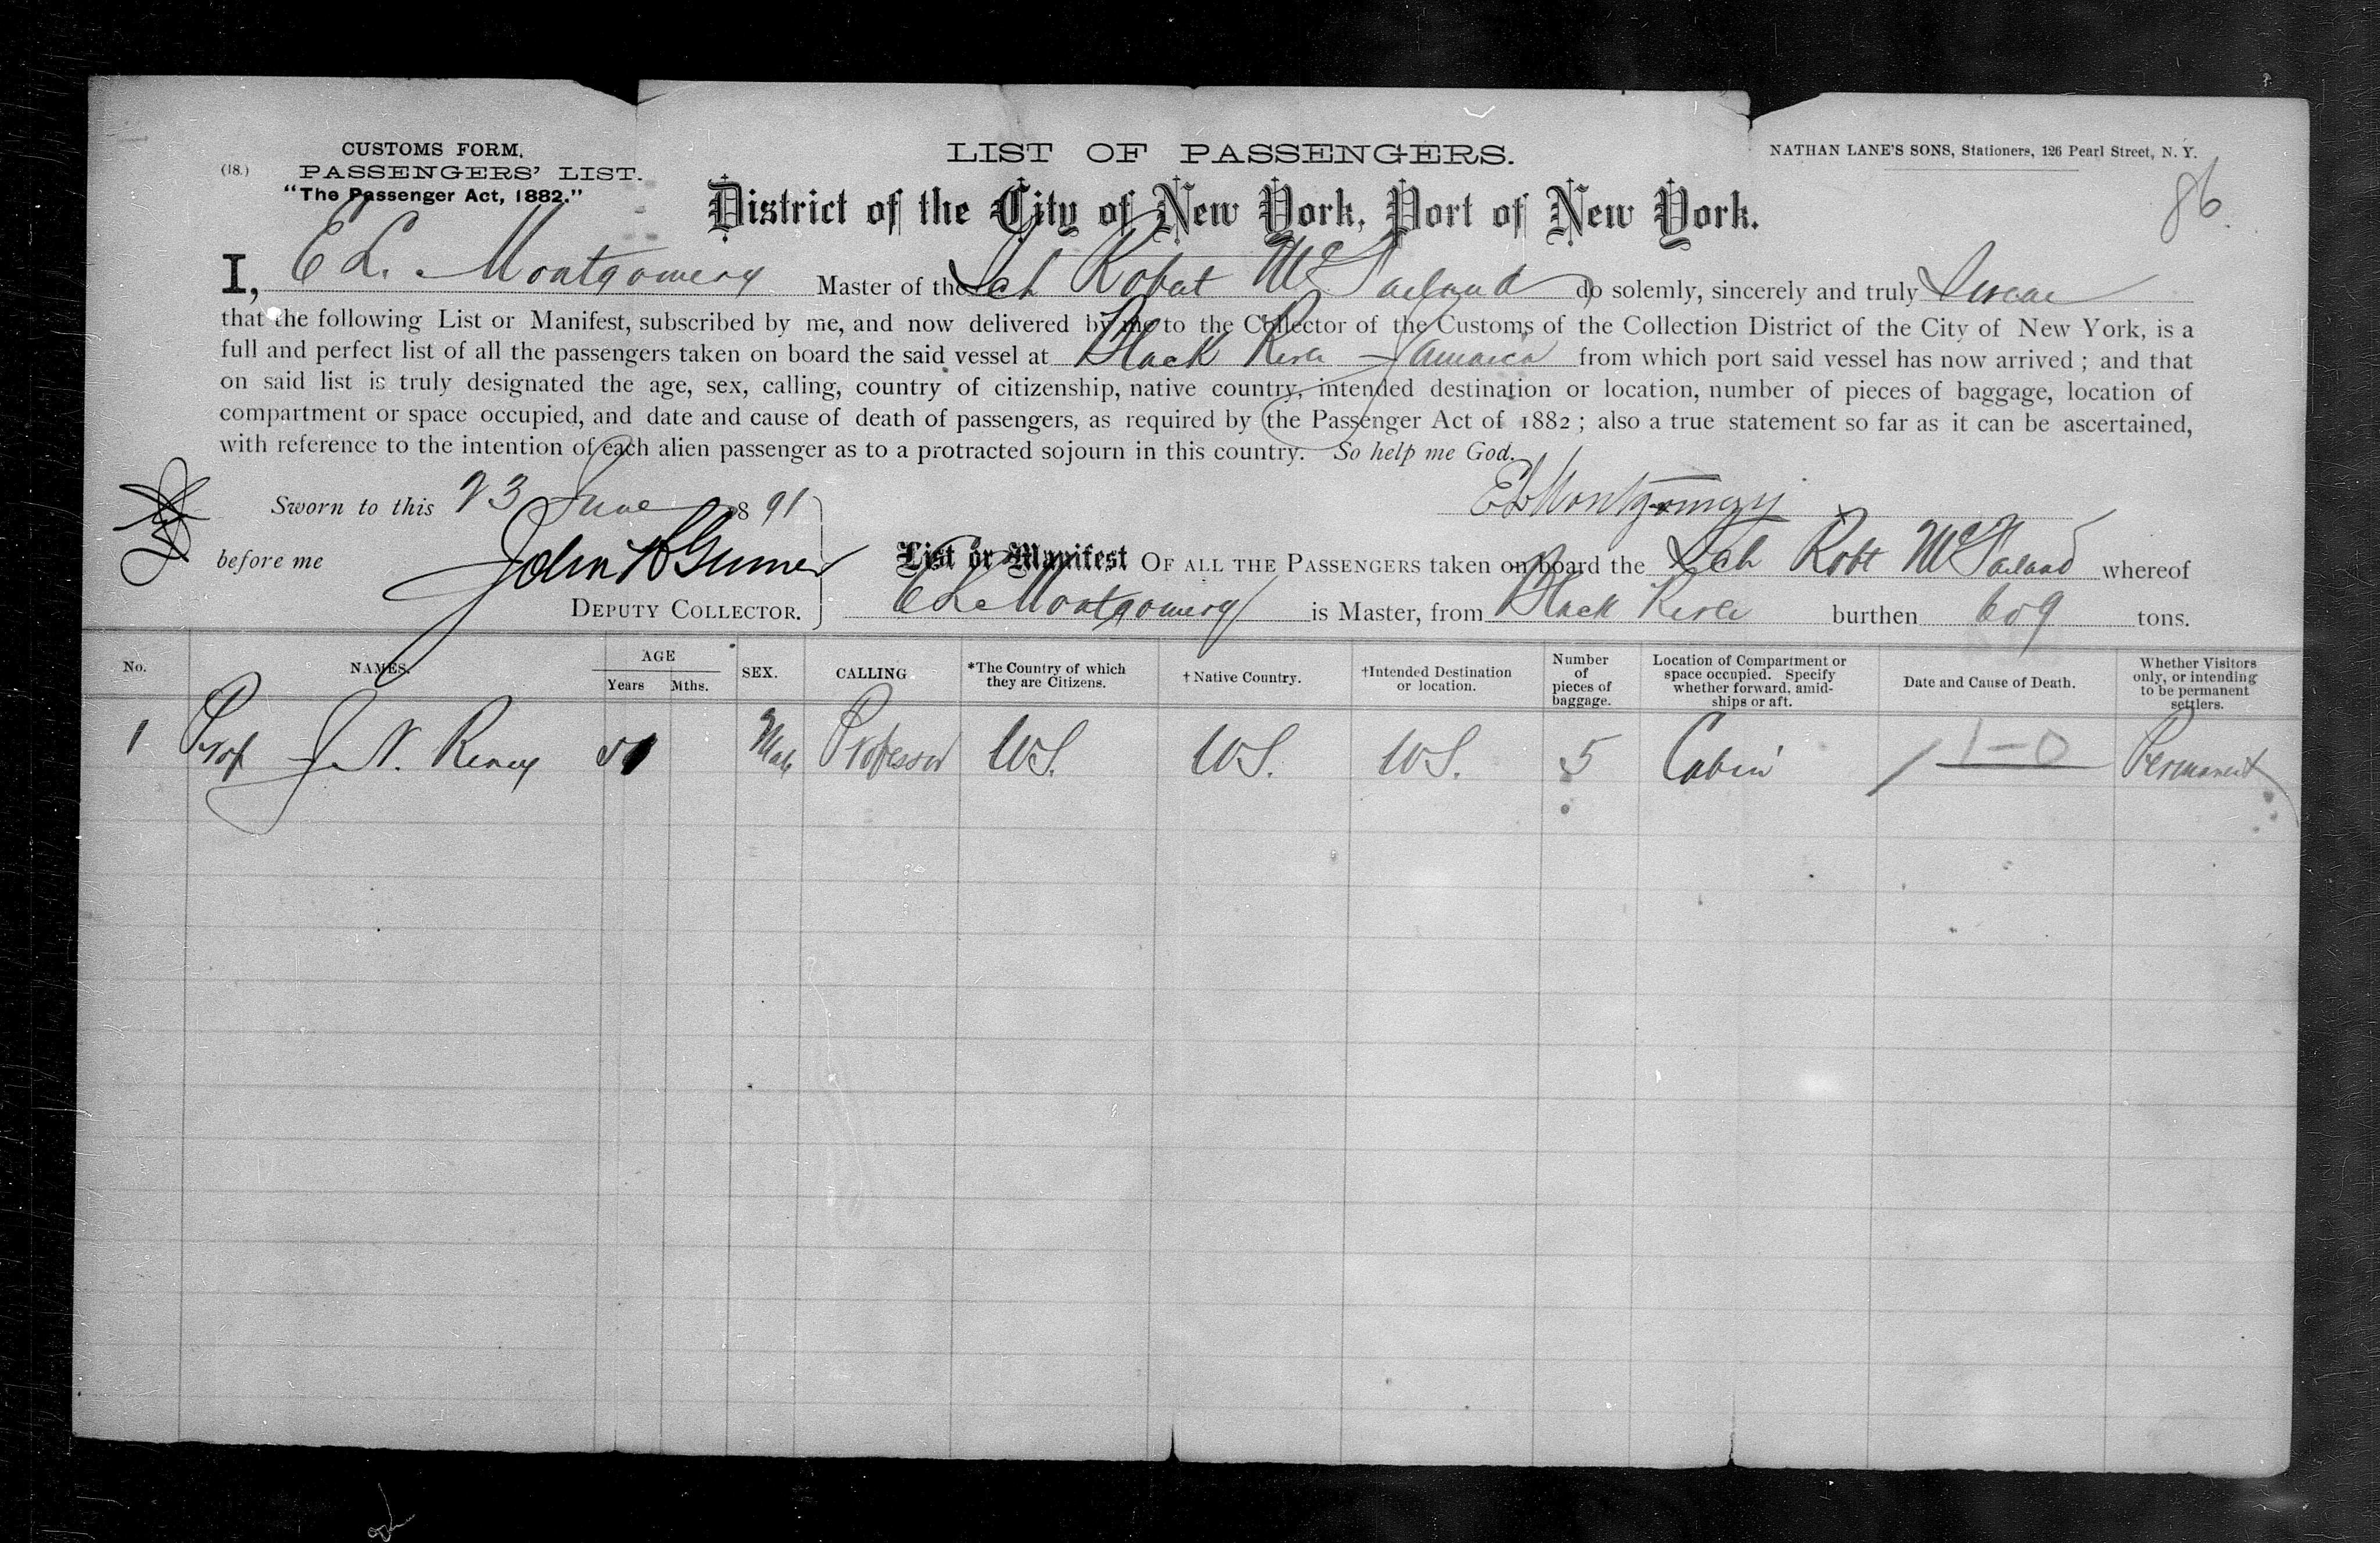 CUSTOMS FORM.
(18.) PASSENGERS' LIST.
"The Passenger Act, 1882."
LIST OF PASSENGERS.
NATHAN LANE'S SONS, Stationers, 126 Pearl Street, N. Y.
86
District of the City of New York, Port of New York.
I, E L. Montgomery Master of the Sch Robert McFarland do solemnly, sincerely and truly Swear
that the following List or Manifest, subscribed by me, and now delivered by me to the Collector of the Customs of the Collection District of the City of New York, is a
full and perfect list of all the passengers taken on board the said vessel at Black River Jamaica from which port said vessel has now arrived ; and that
on said list is truly designated the age, sex, calling, country of citizenship, native country, intended destination or location, number of pieces of baggage, location of
compartment or space occupied, and date and cause of death of passengers, as required by the Passenger Act of 1882 ; also a true statement so far as it can be ascertained,
with reference to the intention of each alien passenger as to a protracted sojourn in this country. So help me God.
Sworn to this 23 June 1891
E L Montgomery
before me John
List or Manifest OF ALL THE PASSENGERS taken on board the Sch Robt McFarland whereof
DEPUTY COLLECTOR.
E L Montgomery is Master, from Black River burthen 609 tons.
No. NAMES. AGE Years Mths. SEX. CALLING *The Country of which they are Citizens. †Native Country. †Intended Destination or location. Number of pieces of baggage. Location of Compartment or space occupied. Specify whether forward, amid-ships or aft. Date and Cause of Death. Whether Visitors only, or intending to be permanent settlers.
1 Prof J. N. Male Professor U.S. U.S. U.S. 5 Cabin 1-0 Permanent